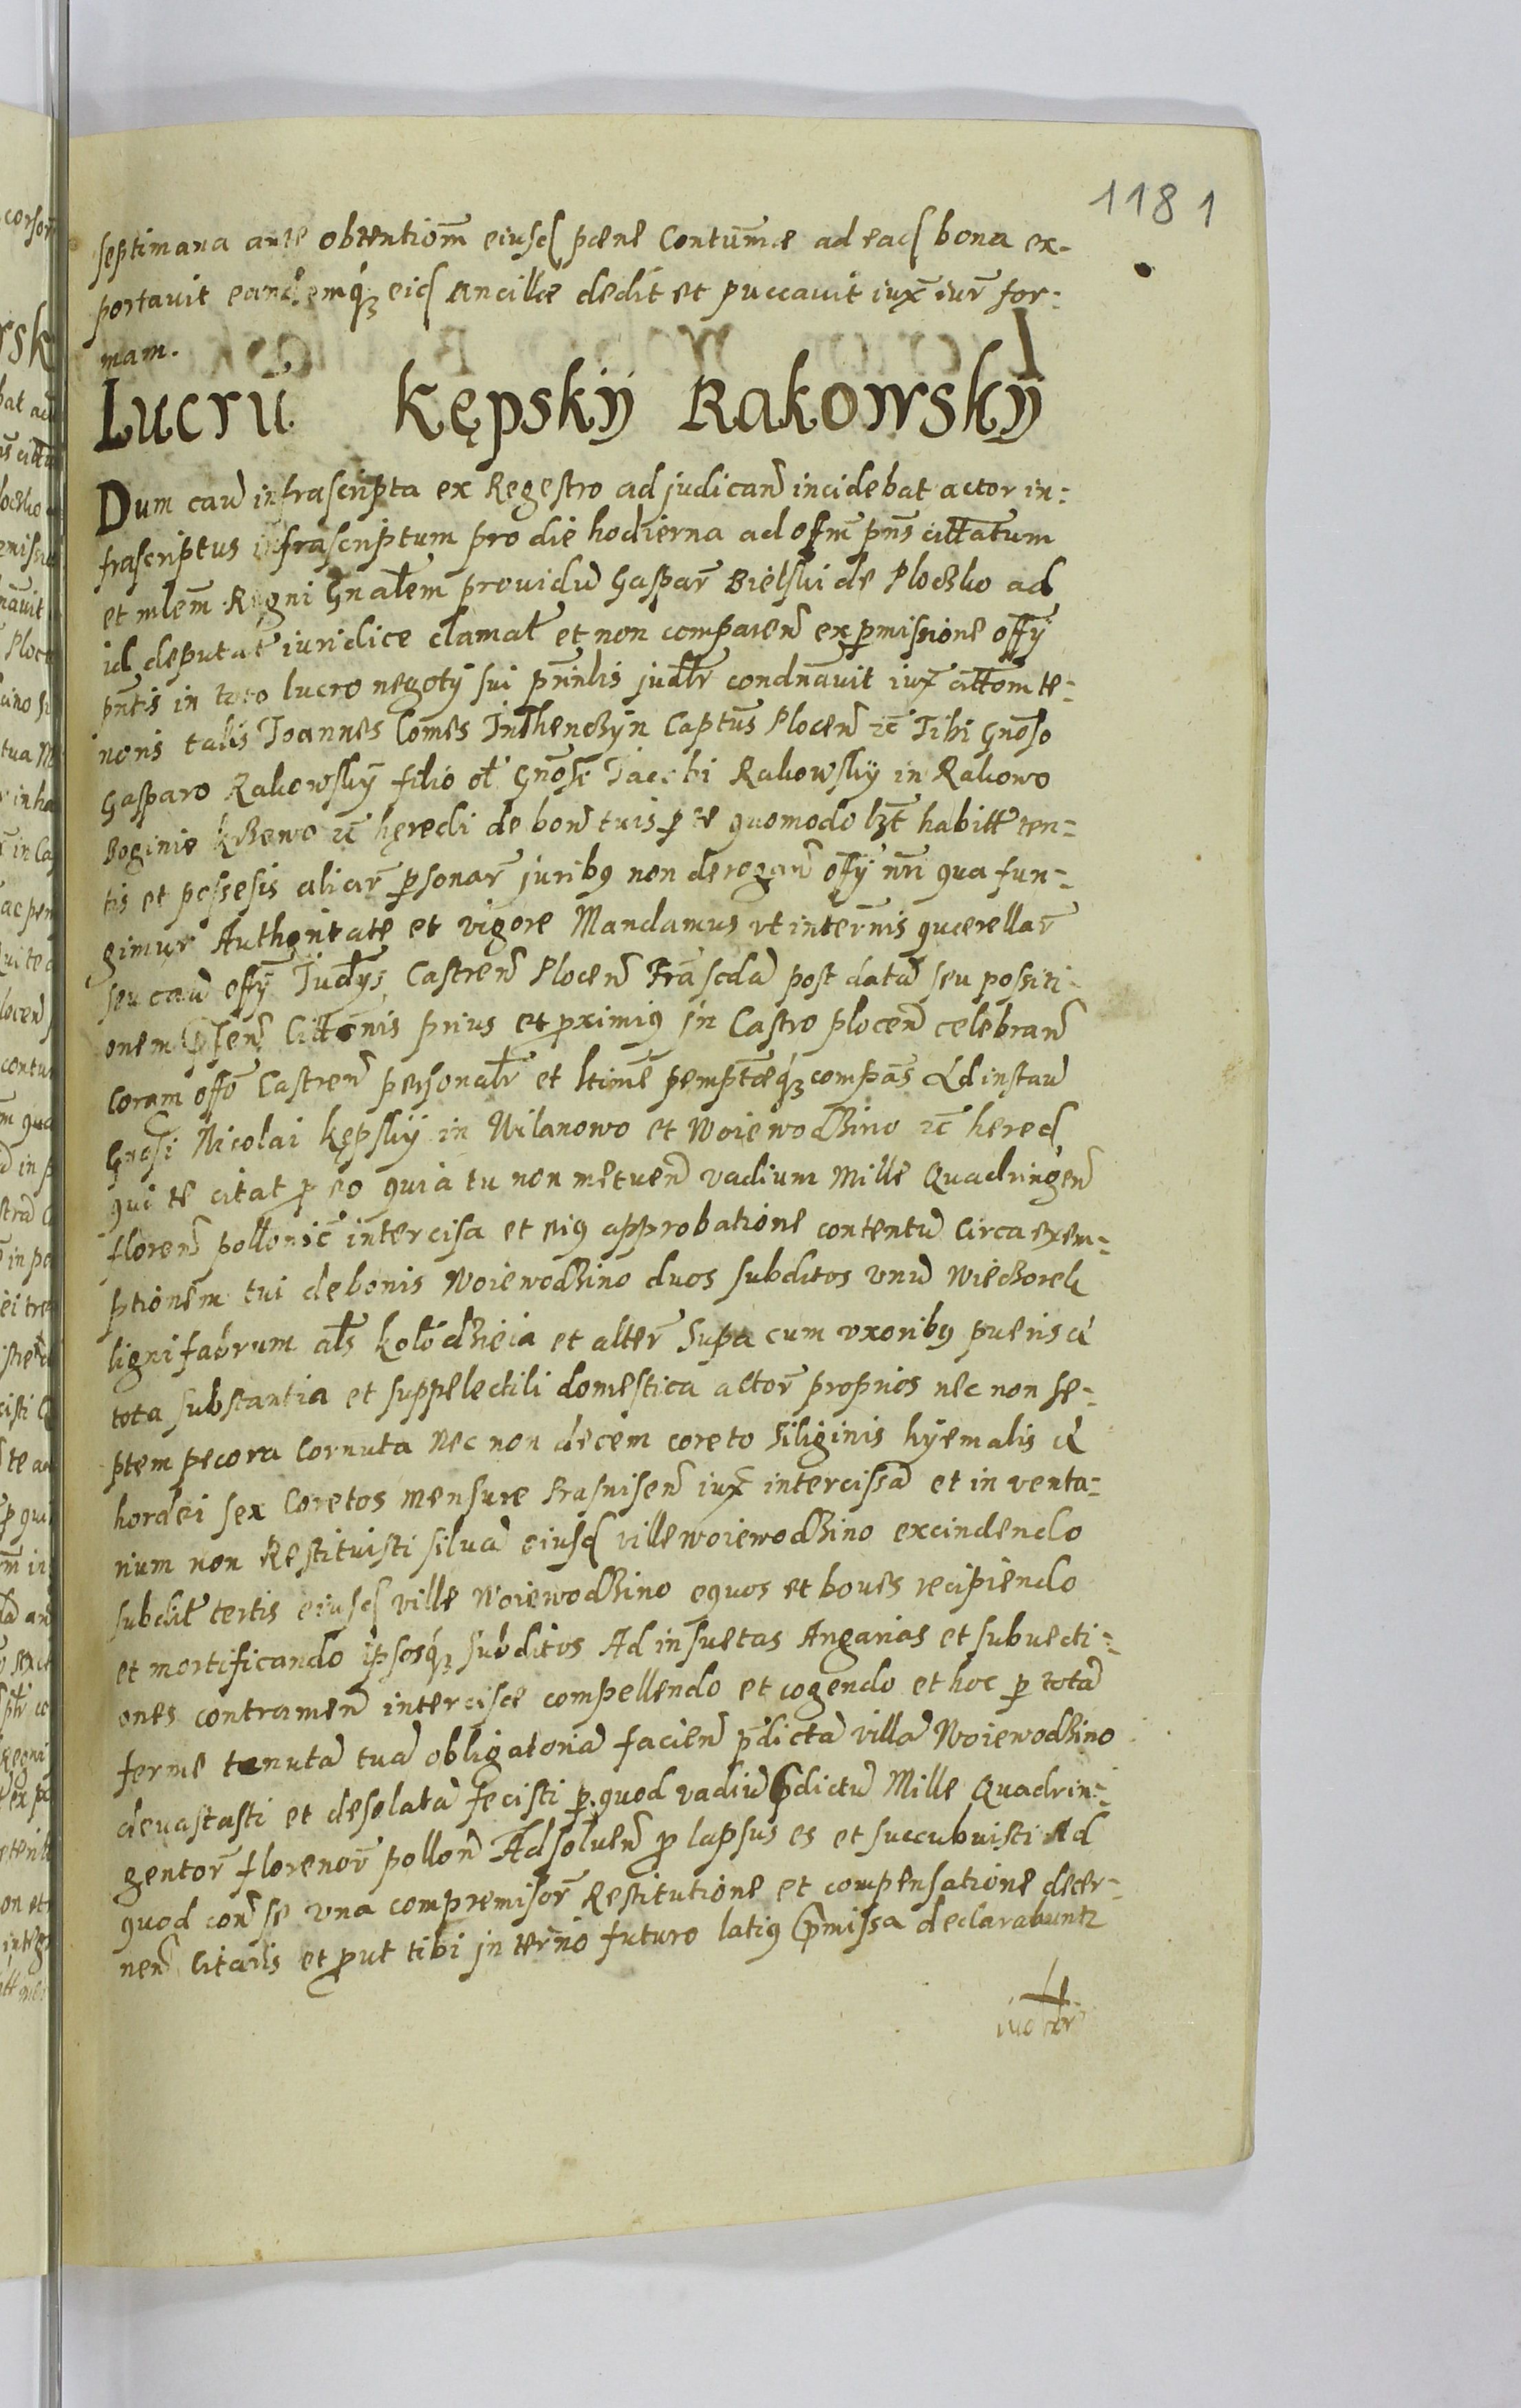 1181
septimana ante obtentiom̃ eiusd pene Contumae ad ead bona ex-
portauit eandemq́ȝ eid ancillae dedit et puccauit iux̃ iur̃ for-
mam.
Lucrũ Kępskÿ Rakowskÿ
Dum caũ infrascripta ex Regestro ad judicañ incidebat actor in-
frascriptus infrascriptum pro die hodierna ad offm̃ pñs cittatum
et mlem̃ Regni Gñalem prouidũ Gaspar̃ Bielski de Ploczko ad
id deputat̃ iuridice clamat̃ et non comparen̄ ex pmissione offÿ
pñtis in toto lucro negotÿ sui pñnlis judlr̃ condnãuit iux̃ citt̃om te-
noris talis Joannes Comes Inthenczÿn Captus Plocen̄ ic̃ Tibi Gnõso
Gasparo Rakowskÿ filio ol̃ Gnõsi Jacobi Rakowskÿ in Rakowo
Boginie kRzewo ic̃ hęredi de bon̄ tuis p te quomodo lȝt habitt̃ ten-
tis et possesis aliar̃ psonar̃ juribȝ non derogañ offÿ nr̃i qua fun-
gimur Authoritate et vigore Mandamus vt in ter̃nis querellar̃
seu caũ offÿ Judÿs Castren̄ Plocen̄ Fr̃a scda post datã seu possiti-
onem pn̄sen̄ Citt̃onis prius et proximiȝ in Castro plocen̄ celebran̄
Coram offõ Castren̄ personalr̃ et ltime pemptaeq́ȝ compãs Ad instañ
Gnosi Nicolai Kępskÿ in Wilanowo et Woiewodzino ic̃ hered
qui te citat pro eo quia tu non metuen̄ vadium Mille Quadringen̄
floren̄ pollonic̃ intercisa et eiȝ approbatione contentũ Circa exem-
ptionem tui de bonis Woiewodzino duos subditos vnũ Wieczorek
lignifabrum als̃ kolodzieia et alter̃ Supa cum vxoribȝ pueris et
tota substantia et suppelectili domestica actor̃ proprios nec non se-
ptem pecora Cornuta Nec non decem coreto siliginis hÿemalis et
hordei sex Coretos mensure Prasnisen̄ iux̃ intercissã et in venta-
rium non Restituisti siluã eiusd ville woiewodzino excindendo
subdit̃ certis eiusd ville Woiewodzino equos et boues recipiendo
et mortificando ipsosq́ȝ subditos Ad insuetas Angarias et subuecti-
ones contramen̄ intercisae compellendo et cogendo et hoc p totã
ferme tenutã tuã obligatoriã facien̄ pdictã villã Woiewodzino
deuastasti et desolatã fecisti p quod vadiũ pdictũ Mille Quadrin-
gentor̃ florenor̃ pollon̄ Adsoluen̄ pro lapsus es et succubuisti Ad
quod con̄ se vna compremisor̃ Restitutione et compensatione decer-
nen̄ Citaris et prout tibi in ter̃no futuro latiȝ pmissa declarabuntr